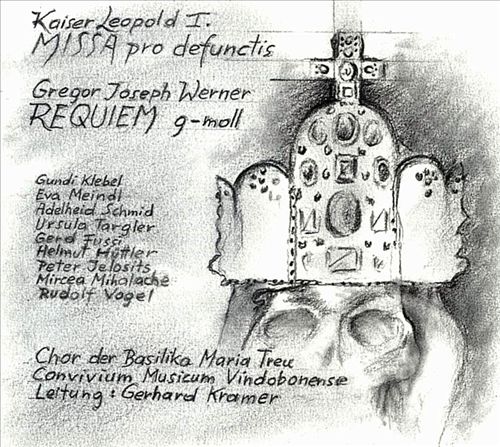 Kaiser Leopold I.
MISSA pro defunctis
Gregor Joseph Werner
REQUIEM g-moll
Gundi Klebel
Eva Meindl
Adelheid Schmid
Ursula Targler
Gerd Fussi
Helmut Hüttler
Peter Jelosits
Mircea Mihalache
Rudolf Vogel
Chor der Basilika Maria Treu
Convivium Musicum Vindobonense
Leitung: Gerhard Kramer